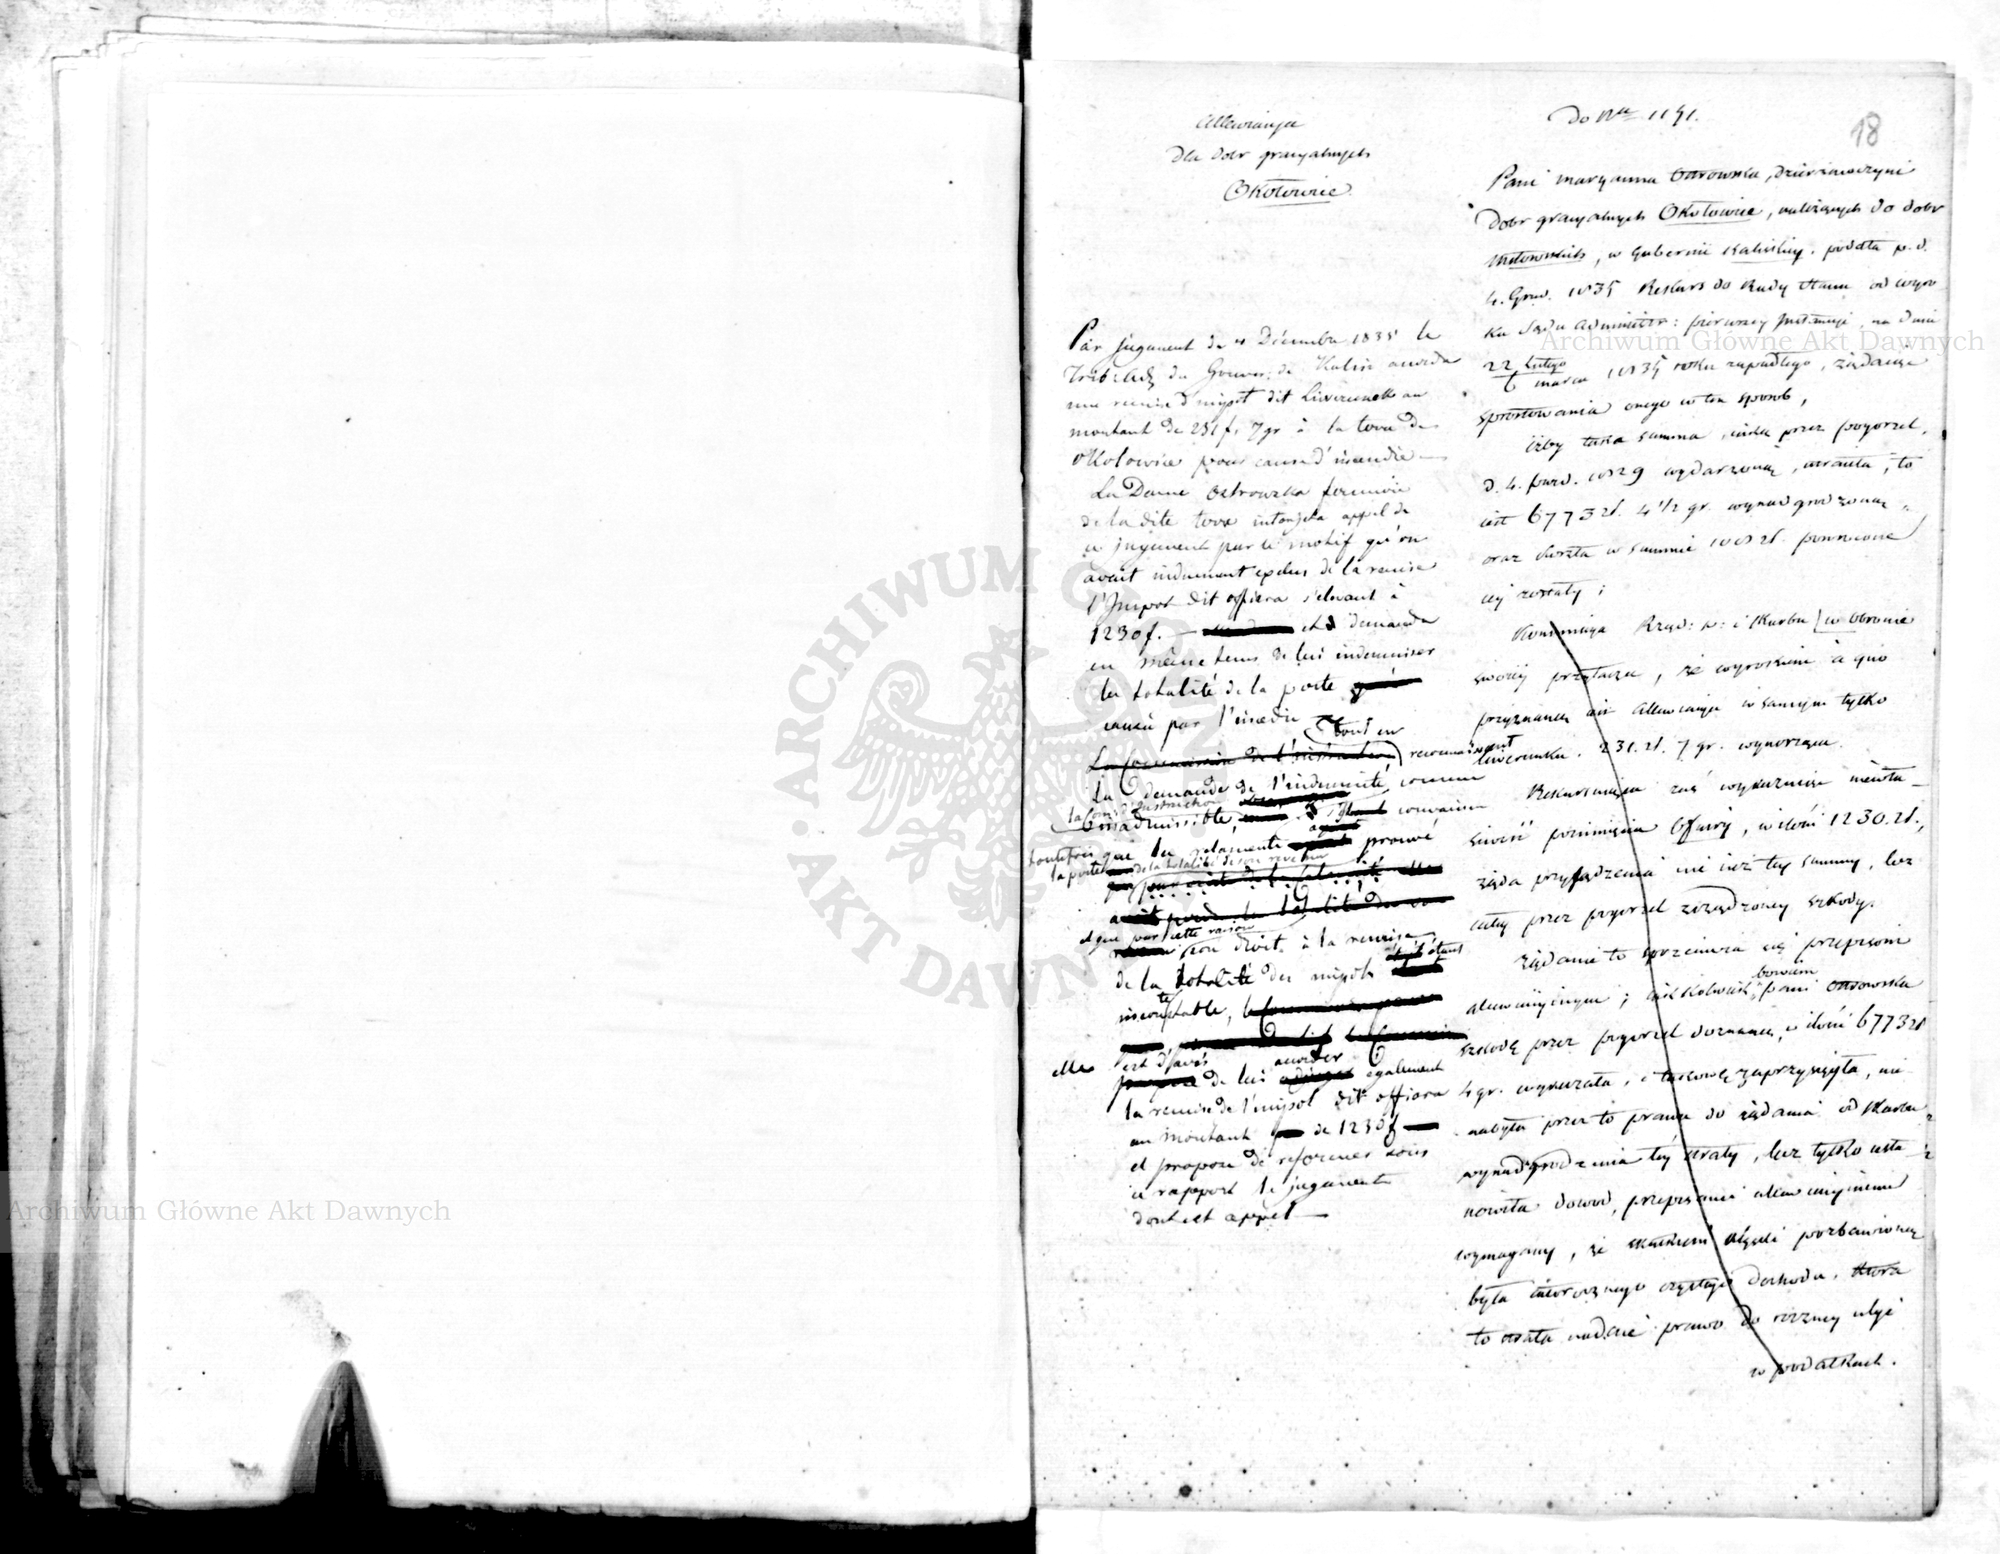 Allewiacya
dla dobr donacyalnych
Okołowice.
Par jugement du 4 Décembre 1835 le
Trib: Adm du Gouver: de Kalisz accorda
une remise d'impôt dit Liwerunek au
montant de 231 f. 7 gr à la terre de
Okolowice pour cause d'incendie —
La Dame Ostrowska fermière
de la dite terre interjeta appel de
ce jugement par le motif qu'on
avait indument exclus de la remise
l'Impot dit offiara s'elevant à
1230 f. — et demanda
en même tems de lui indemniser
la totalité de la perte
causée par l'incendie
tout en
La Commission de l'instruction reconnaissant
La demande de l'indemnité, comme
la Com: d'Instruction
inadmissible, convaincue
toutefois que la reclamante prouvé
la perte de la totalité de son revenu
et que par cette raison
son droit à la remise
de la totalité des impôts étant
incontestable,
elle est d'avis
de lui accorder également
la remise de l'impôt dit offiara
au montant de 1230 f
et propose de reformer sous
ce rapport le jugement
dont est appel —
Do Nru 1141.
18
Pani Maryanna Ostrowska, dzierzawczyni
Dobr Okołowice, należących do dobr
w Gubernii Kaliskiey, podała p. d.
4. Grud. 1835 Rekurs do Rady Stanu od wyro-
ku Sądu Administr: pierwszey Instancyi, na dniu
22 Lutego
6 Marca 1835 roku zapadłego, żądaiąc
sprostowania onego w ten sposob,
iżby taka summa, iaką przez pogorzel,
d. 4. paźd. 1829 wydarzoną, utraciła, to
iest 6773 zł. 4 1/2 gr. wynadgrodzoną,
oraz koszta w summie 100 zł. powrocone
iey zostały;
Kommissya Rząd: P: i Skarbu w obronie
swoiey przytacza, że wyrokiem a quo
przyznaną iest Allewiacya w samym tylko
liwerunku. 231. zł. 7 gr. wynosząca.
Rekursuiąca zaś wykazuiąc niewła-
ściwość pominięcia Ofiary, w ilości 1230. zł.,
żąda przysądzenia nie iuż tey summy, lecz
całey przez pogorzel zrządzoney szkody.
Żądanie to sprzeciwia się przepisom
allewiacyinym; iakkolwiek bowiem Pani Ostrowska
szkodę przez pogorzel doznaną, w ilości 6773 zł
4 gr. wykazała, i takową zaprzysięgła, nie
nabyła przez to prawa do żądania od Skarbu
wynadgrodzenia tey straty, lecz tylko usta-
nowiła dowod, przepisami allewiacyinemi
wymagany, że skutkiem klęski pozbawioną
była całorocznego czystego dochodu, ktora
to strata nadaie prawo do roczney ulgi
w podatkach.
Archiwum Główne Akt Dawnych
Archiwum Główne Akt Dawnych
ARCHIWUM GŁÓWNE AKT DAWNYCH